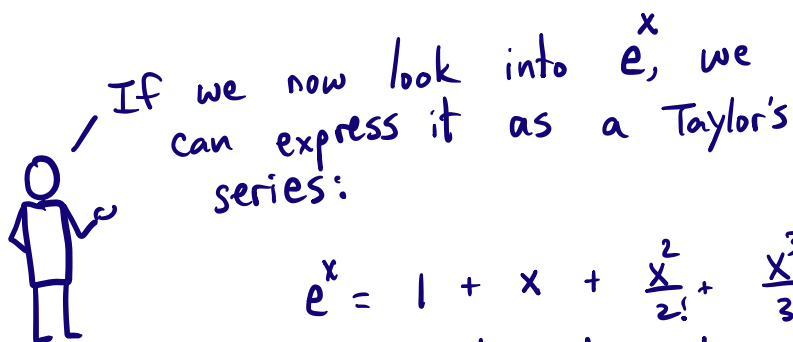 If we now look into e^x, we
can express it as a Taylor's
series:
e^x = 1 + x + x^2/2! + x^3/3